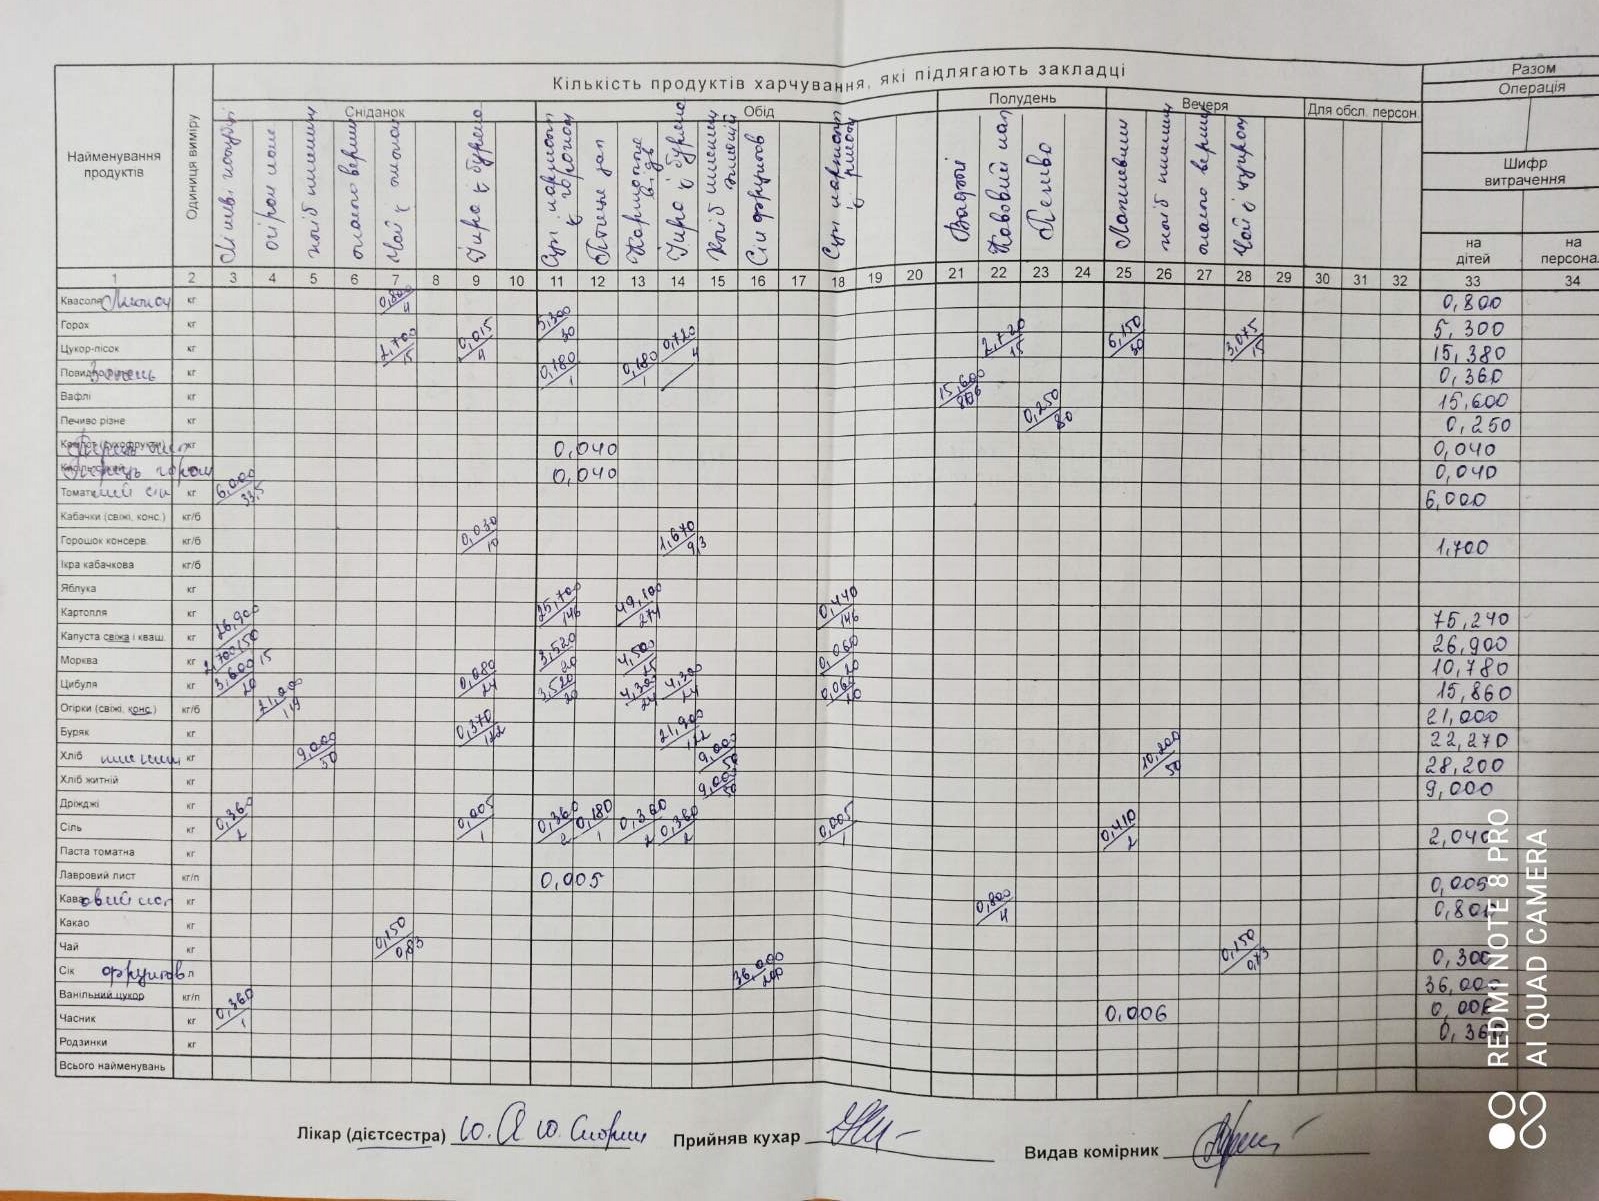 Кількість продуктів харчування, які підлягають закладці
Разом
Операція
Найменування продуктів
Одиниця виміру
Сніданок
Обід
Полудень
Вечеря
Для обсл. персон.
Шифр витрачення
на дітей
на персонал
Чай з лимон
Пюре з буряка
Суп картопл з горохом
Пюре з буряка
Сік фруктов
Вафлі
Кавовий нап
Печиво
масло верш
Чай з цукром
1 2 3 4 5 6 7 8 9 10 11 12 13 14 15 16 17 18 19 20 21 22 23 24 25 26 27 28 29 30 31 32 33 34
Квасоля Лимон кг 0,800/4 0,800
Горох кг 5,300/30 5,300
Цукор-пісок кг 2,700/15 0,015/4 0,720/4 2,720/15 6,150/30 3,075/15 15,380
Повидло кг 0,180/1 0,180/1 0,360
Вафлі кг 15,600 15,600
Печиво різне кг 0,250/80 0,250
Компот (сухофрукти) кг 0,040 0,040
Перець горош 0,040 0,040
Томатний сік кг 6,000/33,5 6,000
Кабачки (свіжі, конс.) кг/б
Горошок консерв. кг/б 0,030/10 1,670/9,3 1,700
Ікра кабачкова кг/б
Яблука кг
Картопля кг 25,700/146 49,100/274 0,440/146 75,240
Капуста свіжа і кваш. кг 26,900/150 26,900
Морква кг 2,700/15 3,520/20 4,500/25 0,060/20 10,780
Цибуля кг 3,600/20 0,080/24 3,520/20 4,300/24 4,300/24 0,060/20 15,860
Огірки (свіжі, конс.) кг/б 21,000/119 21,000
Буряк кг 0,370/122 21,900/122 22,270
Хліб пшенич кг 9,000/50 9,000/50 10,200/50 28,200
Хліб житній кг 9,000/50 9,000
Дріжджі кг
Сіль кг 0,360/2 0,005/1 0,360/2 0,180/1 0,360/2 0,360/2 0,005/1 0,410/2 2,040
Паста томатна кг
Лавровий лист кг/п 0,005 0,005
Кавовий нап кг 0,800/4 0,80
Какао кг
Чай кг 0,150/0,83 0,150/0,73 0,300
Сік фруктов л 36,000/200 36,000
Ванільний цукор кг/п 0,006 0,006
Часник кг 0,360/1 0,360
Родзинки кг
Всього найменувань
Лікар (дієтсестра)
Прийняв кухар
Видав комірник
REDMI NOTE 8 PRO
AI QUAD CAMERA